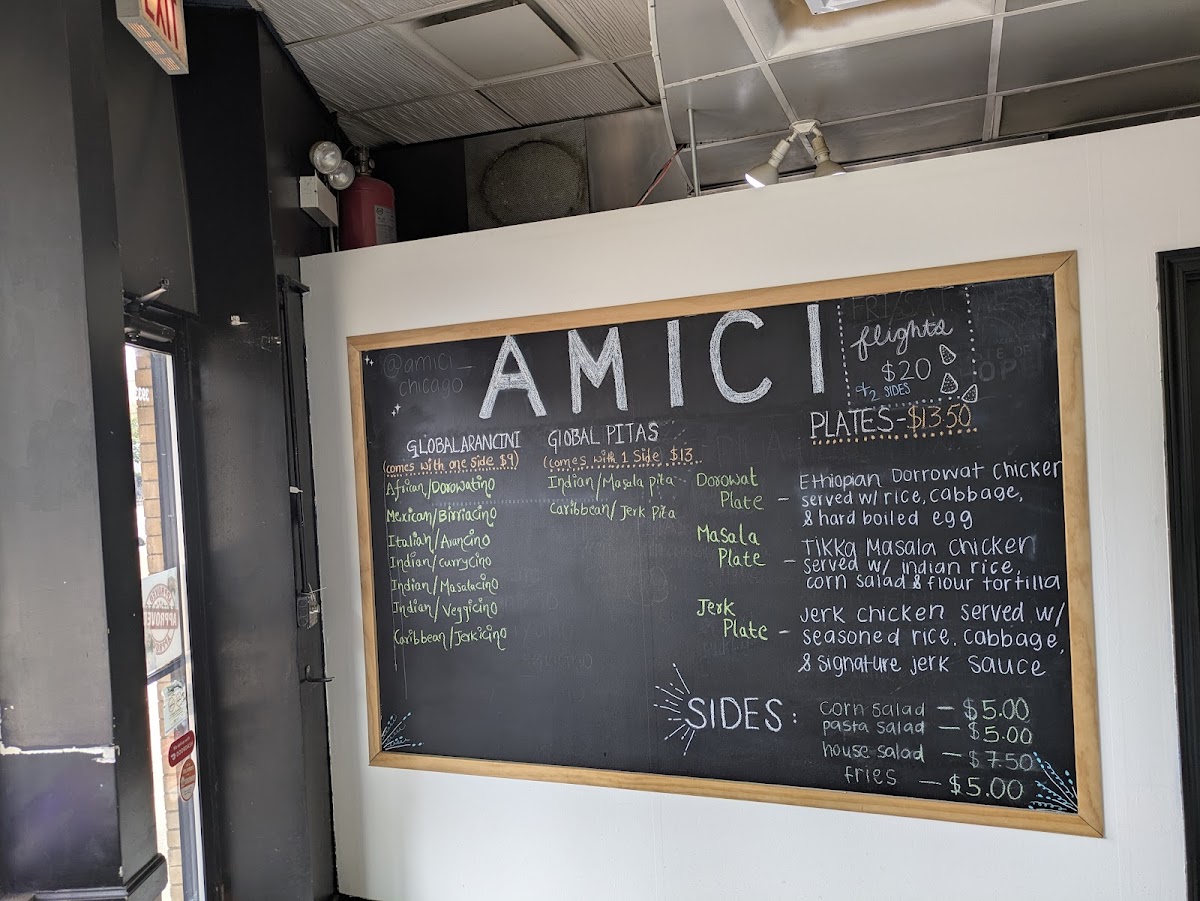 EXIT
@amici_
chicago
AMICI
FRI/SAT
flights
$20
+2 SIDES
PLATES-$13.50
GLOBAL ARANCINI
(comes with one side $9)
African/Dorowatino
Mexican/Birriacino
Italian/Arancino
Indian/currycino
Indian/Masalacino
Indian/Veggicino
Caribbean/Jerkicino
GlOBAL PITAS
(comes with 1 Side $13..
Indian/Masala pita
Caribbean/Jerk Pita
Dorowat
Plate -
Ethiopian Dorrowat chicken
served w/ rice, cabbage,
& hard boiled egg
Masala
Plate -
Tikka Masala chicken
served w/ indian rice,
corn salad & flour tortilla
Jerk
Plate -
Jerk chicken served w/
seasoned rice, cabbage,
& signature jerk sauce
SIDES:
corn salad - $5.00
pasta salad - $5.00
house salad - $7.50
fries - $5.00
APPROVED